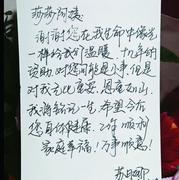 莎莎阿姨:
谢谢您在我生命中像光
一样给我们温暖,十九年的
资助,对您可能是小事,但是
对我无比重要,恩重如山。
我将铭记一生,希望今后
您身体健康、工作顺利
家庭幸福!万事顺意!